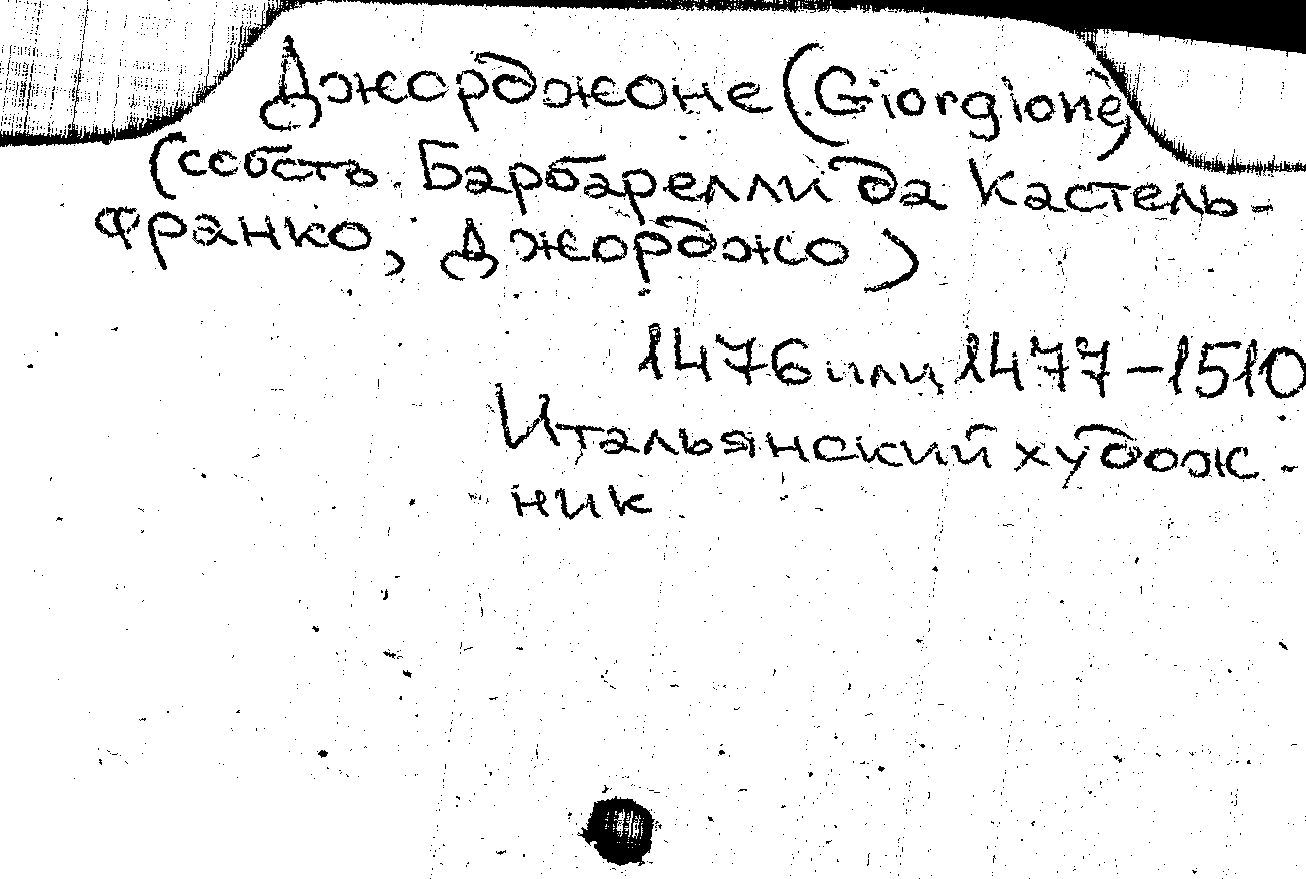 Джорджоне (Giorgione)
(собств. Барбарелли да Кастель-
франко, Джорджо)
1476 или 1477-1510
Итальянский худож-
ник